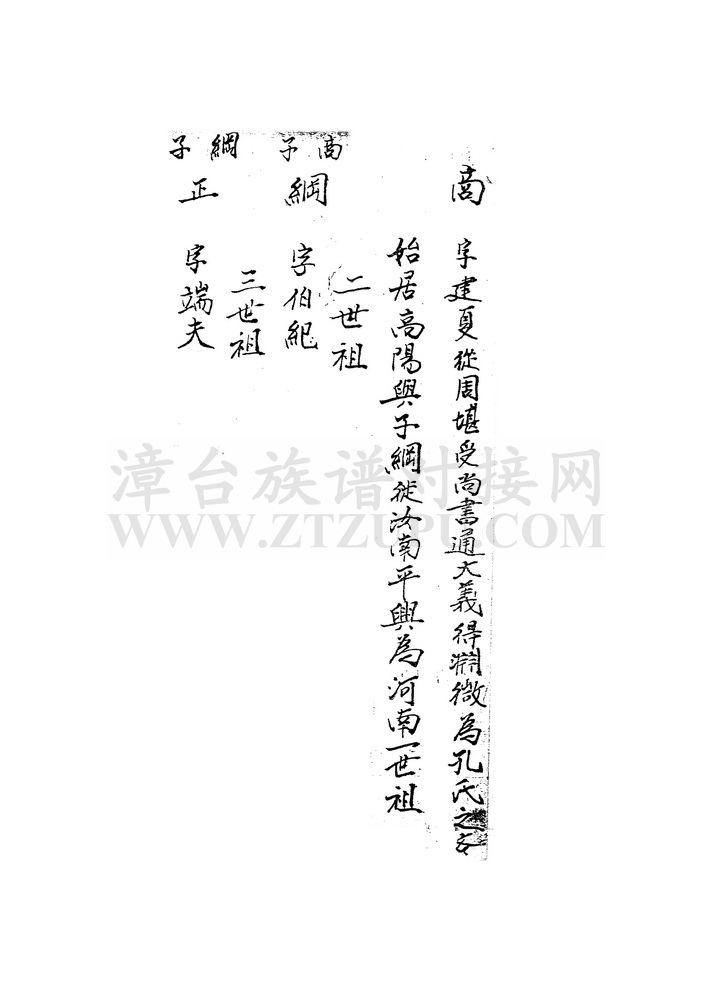 商
字建夏從周堪受尚書通大義得淵微為孔氏之
始居高陽與子綱徙汝南平輿為河南一世祖
二世祖
商子
綱
字伯紀
三世祖
綱子
正
字端夫
漳台族谱对接网
WWW.ZTZUPU.COM